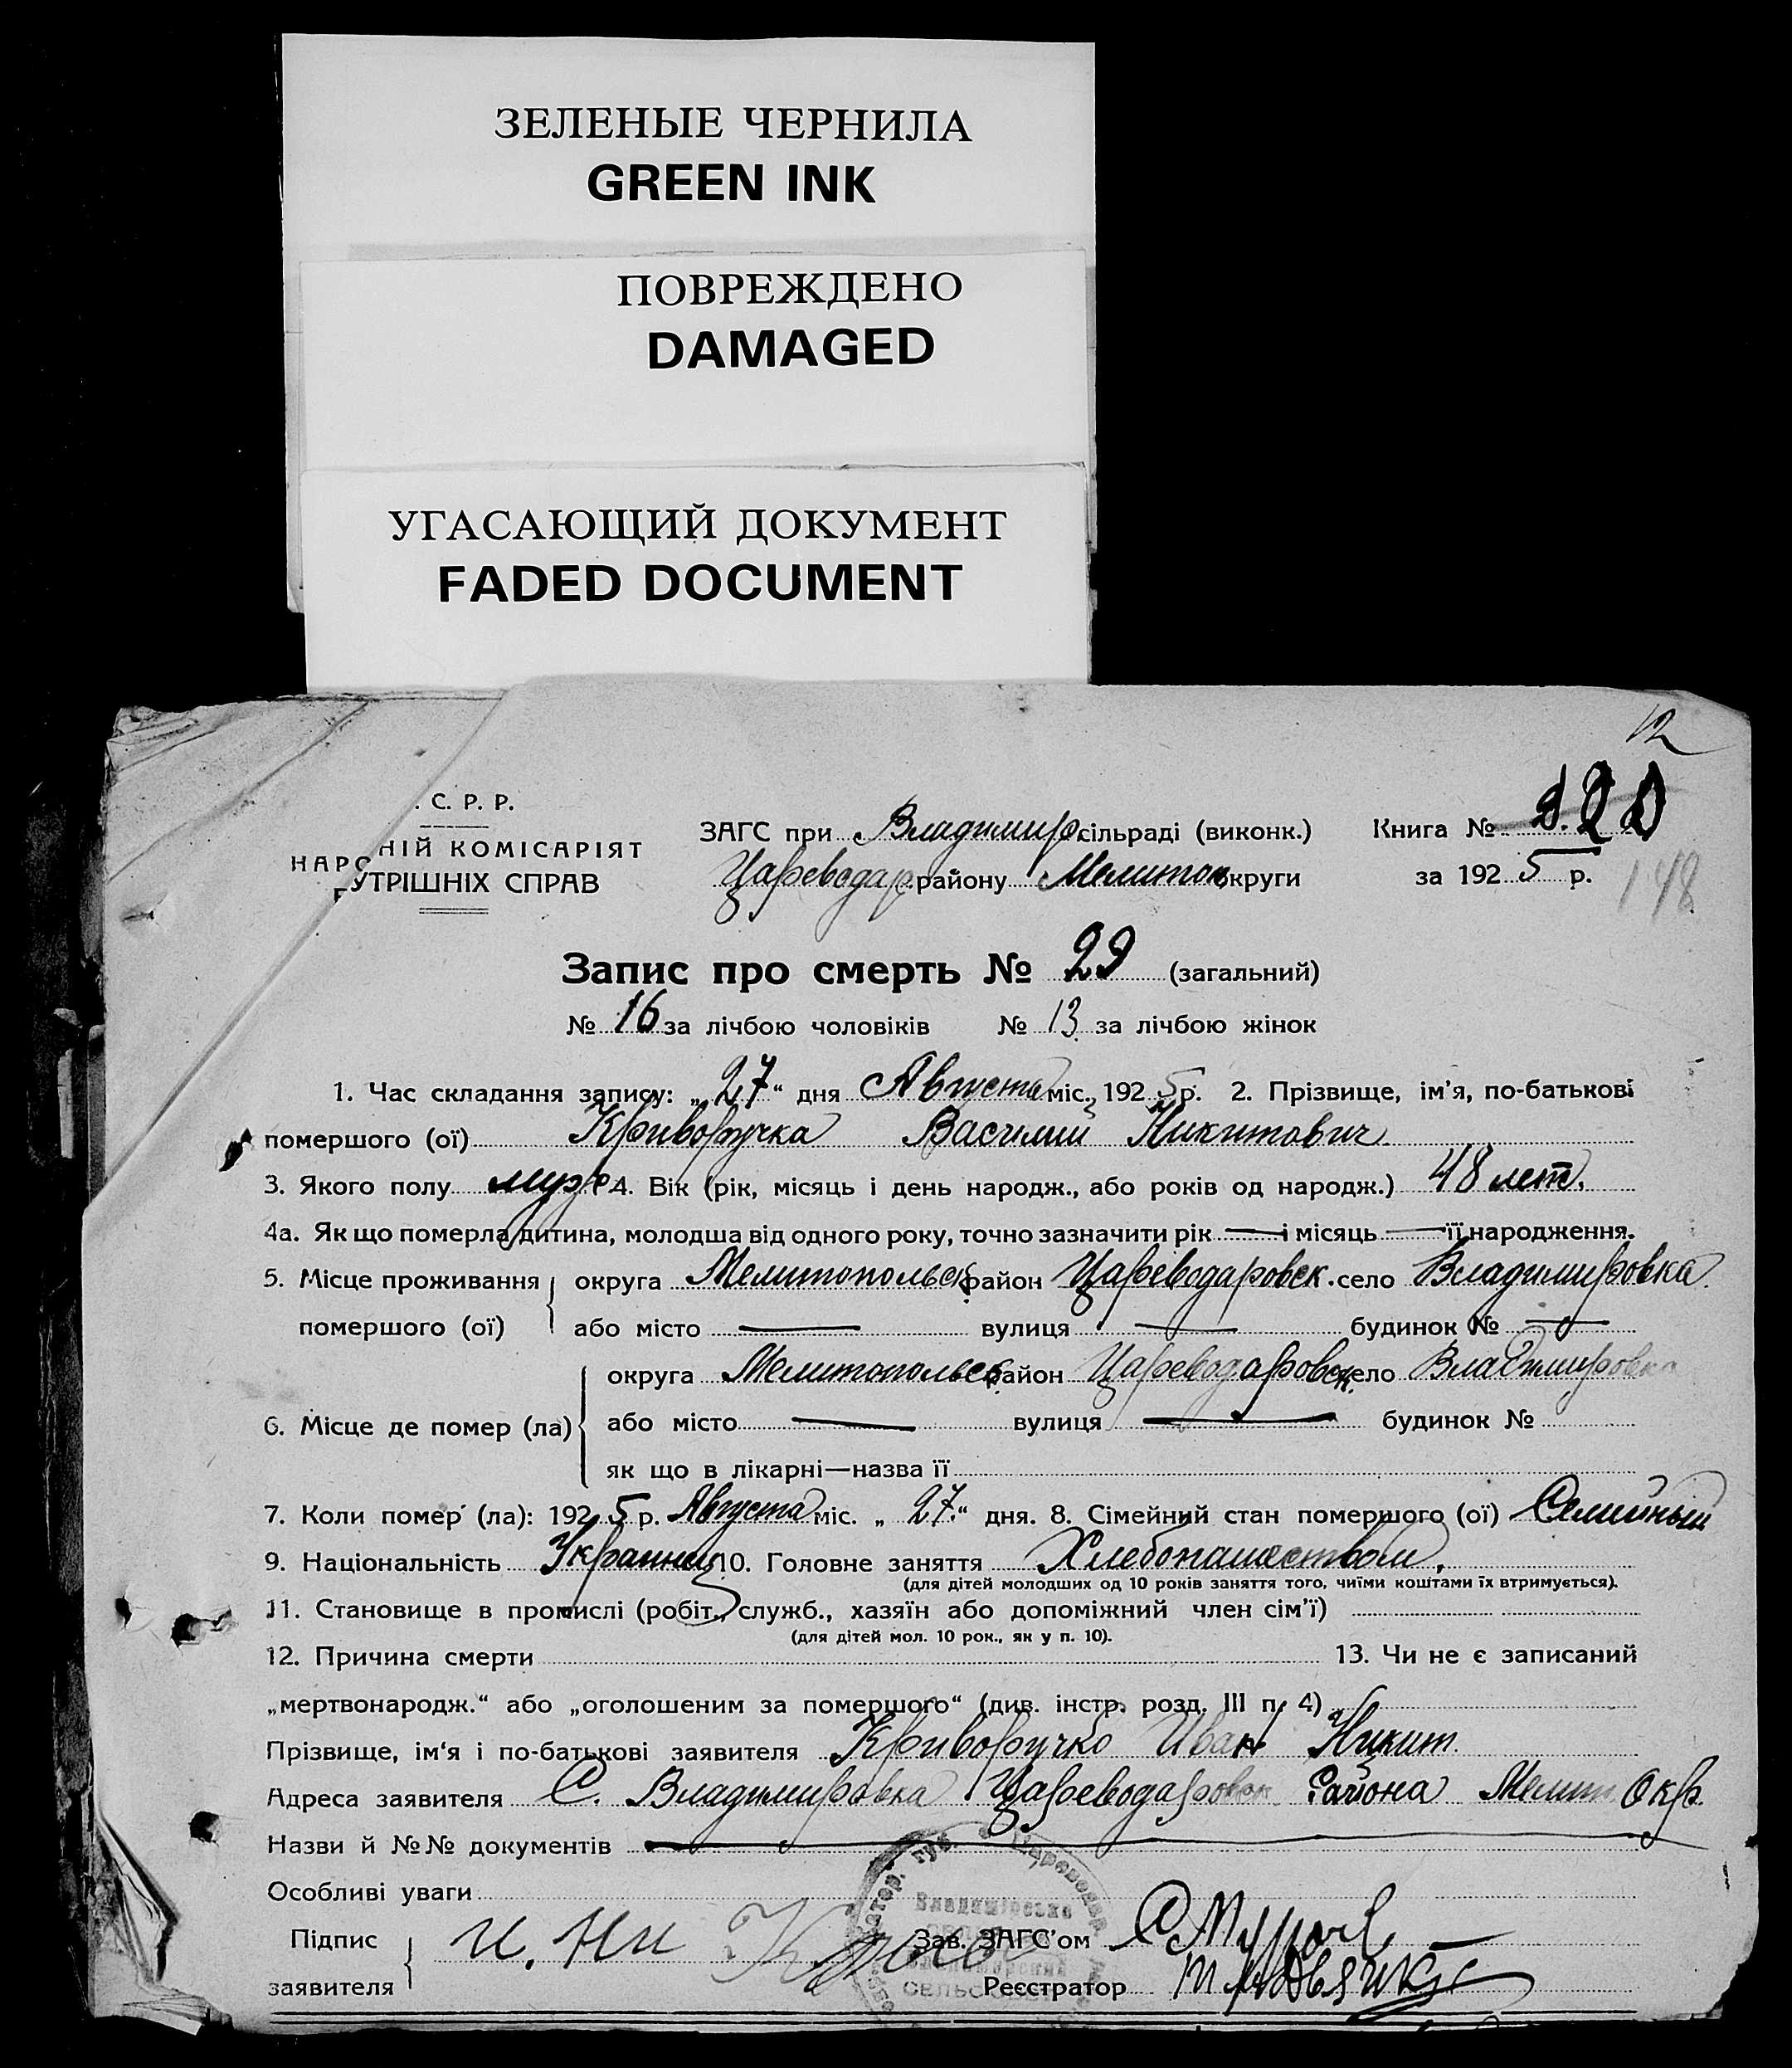 ЗЕЛЕНЫЕ ЧЕРНИЛА
GREEN INK
ПОВРЕЖДЕНО
DAMAGED
УГАСАЮЩИЙ ДОКУМЕНТ
FADED DOCUMENT
12
. С. Р. Р.
НАРО НІЙ КОМІСАРІЯТ
УТРІШНІХ СПРАВ
ЗАГС при Владимир. сільраді (виконк.) Книга №
Цареводар. району Мелитоп округи за 1925 р. 148
Запис про смерть № 29 (загальний)
№ 16 за лічбою чоловіків № 13 за лічбою жінок
1. Час складання запису: „27“ дня Августа міс. 1925 р. 2. Прізвище, ім'я, по-батькові
помершого (ої) Криворучка Василий Никитович
3. Якого полу муж 4. Вік (рік, місяць і день народж., або років од народж.) 48 лет.
4а. Як що померла дитина, молодша від одного року, точно зазначити рік — і місяць — її народження.
5. Місце проживання помершого (ої) округа Мелитопольск район Цареводаровск. село Владимировка
або місто — вулиця — будинок № —
6. Місце де помер (ла) округа Мелитопольск район Цареводаровск. село Владимировка
або місто — вулиця — будинок №
як що в лікарні—назва її
7. Коли помер (ла): 1925 р. Августа міс. „27“ дня. 8. Сімейний стан помершого (ої) Семейный
9. Національність Украинец 10. Головне заняття Хлебопашеством,
(для дітей молодших од 10 років заняття того, чиїми коштами їх втримується).
11. Становище в промислі (робіт., служб., хазяїн або допоміжний член сім'ї)
(для дітей мол. 10 рок., як у п. 10).
12. Причина смерти 13. Чи не є записаний
„мертвонародж.“ або „оголошеним за помершого“ (див. інстр. розд. III п. 4)
Прізвище, ім'я і по-батькові заявителя Криворучко Иван Никит.
Адреса заявителя С. Владимировка Цареводаровск Района Мелит. Окр.
Назви й №№ документів —
Особливі уваги
Підпис заявителя И. Ни Зав. ЗАГС'ом
Реєстратор